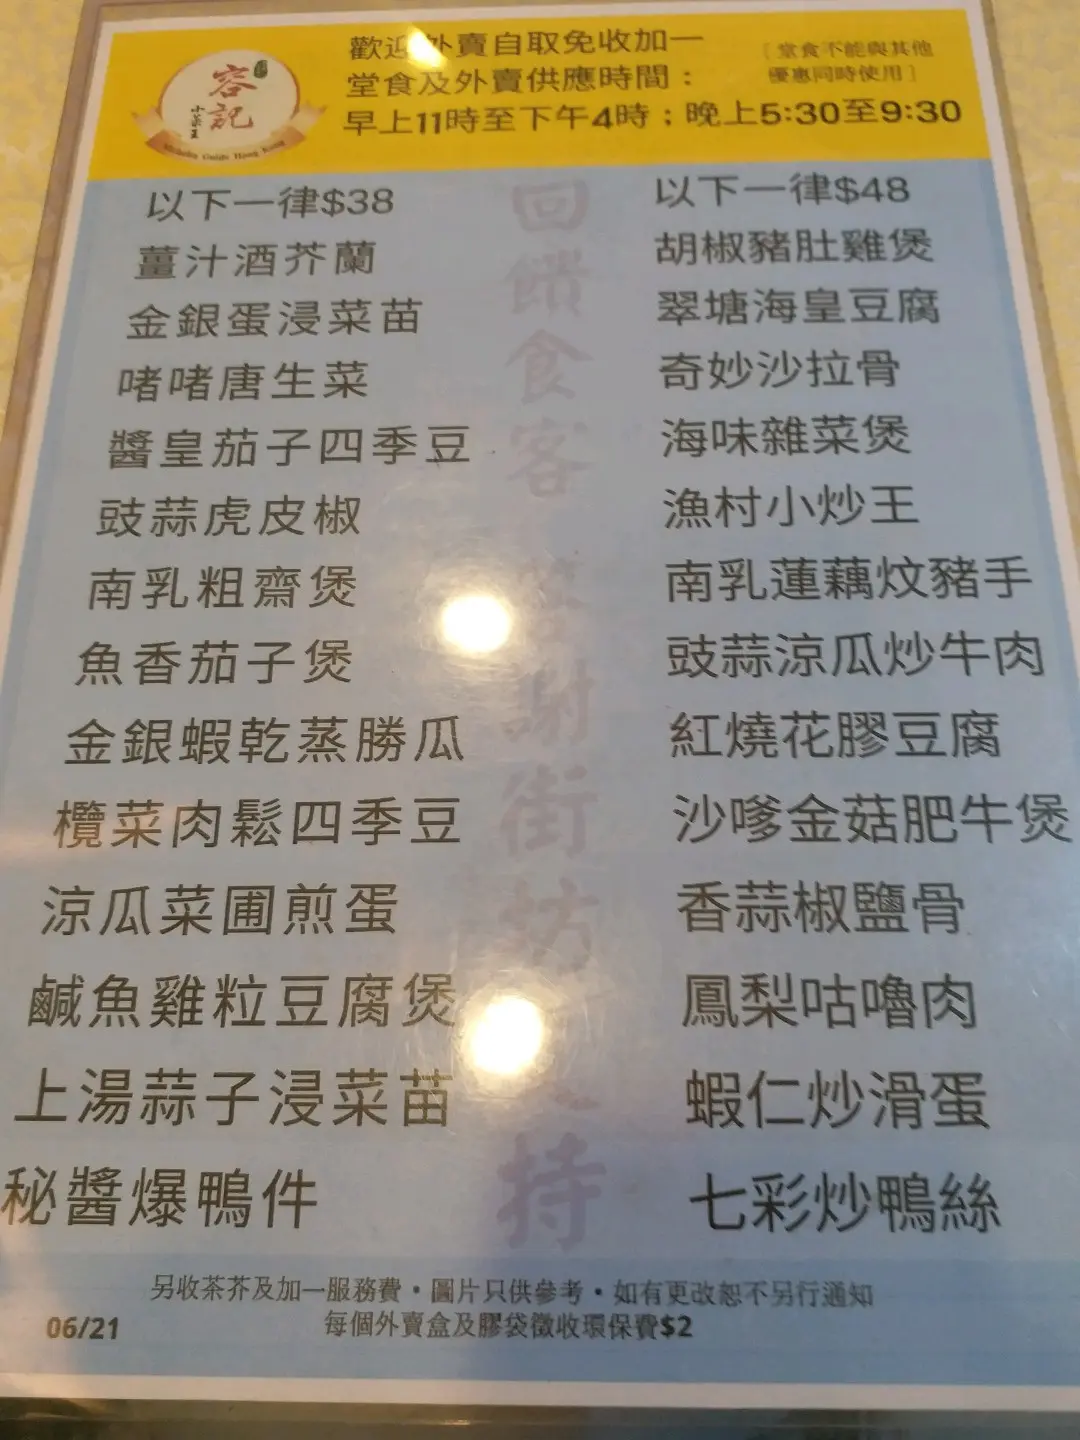 容記
小菜王
Michelin Guide Hong Kong
歡迎外賣自取免收加一
堂食及外賣供應時間：
早上11時至下午4時；晚上5:30至9:30
［堂食不能與其他
優惠同時使用］
以下一律$38
薑汁酒芥蘭
金銀蛋浸菜苗
啫啫唐生菜
醬皇茄子四季豆
豉蒜虎皮椒
南乳粗齋煲
魚香茄子煲
金銀蝦乾蒸勝瓜
欖菜肉鬆四季豆
涼瓜菜圃煎蛋
鹹魚雞粒豆腐煲
上湯蒜子浸菜苗
秘醬爆鴨件
以下一律$48
胡椒豬肚雞煲
翠塘海皇豆腐
奇妙沙拉骨
海味雜菜煲
漁村小炒王
南乳蓮藕炆豬手
豉蒜涼瓜炒牛肉
紅燒花膠豆腐
沙嗲金菇肥牛煲
香蒜椒鹽骨
鳳梨咕嚕肉
蝦仁炒滑蛋
七彩炒鴨絲
回饋食客 謝街坊 持
另收茶芥及加一服務費・圖片只供參考・如有更改恕不另行通知
每個外賣盒及膠袋徵收環保費$2
06/21